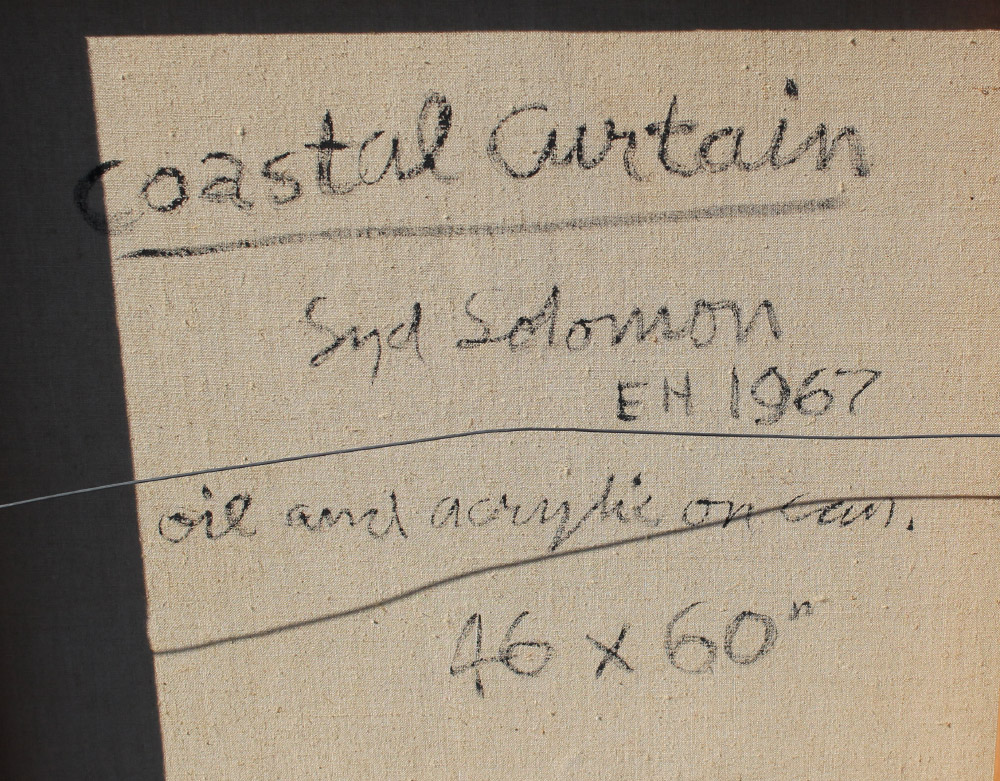 Coastal Curtain
Syd Solomon
EH 1967
oil and acrylic on can.
46 x 60"